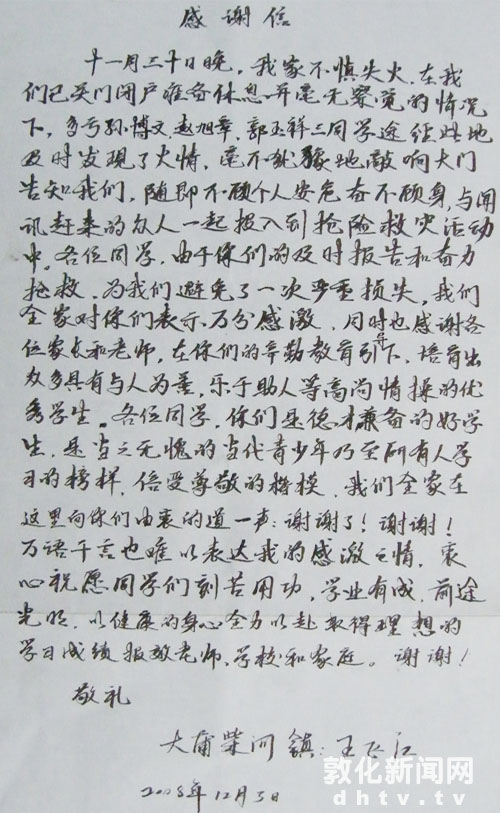 感谢信
十一月三十日晚，我家不慎失火，在我
们已关门闭户准备休息并毫无察觉的情况
下，多亏孙博文、赵旭章、郭玉祥三同学途经此地
及时发现了火情，毫不犹豫地敲响大门
告知我们，随即不顾个人安危奋不顾身，与闻
讯赶来的众人一起投入到抢险救灾活动
中。各位同学，由于你们的及时报告和奋力
抢救，为我们避免了一次严重损失，我们
全家对你们表示万分感激，同时也感谢各
位家长和老师，在你们的辛勤教育引导下，培育出
众多具有与人为善，乐于助人等高尚情操的优
秀学生。各位同学，你们是德才兼备的好学
生，是当之无愧的当代青少年乃至所有人学
习的榜样，倍受尊敬的楷模，我们全家在
这里向你们由衷的道一声：谢谢了！谢谢！
万语千言也难以表达我的感激之情，衷
心祝愿同学们刻苦用功，学业有成，前途
光明，以健康的身心全力以赴取得理想的
学习成绩报效老师、学校和家庭。谢谢！
敬礼
大蒲柴河镇：王飞江
2008年12月3日
敦化新闻网
dhtv.tv